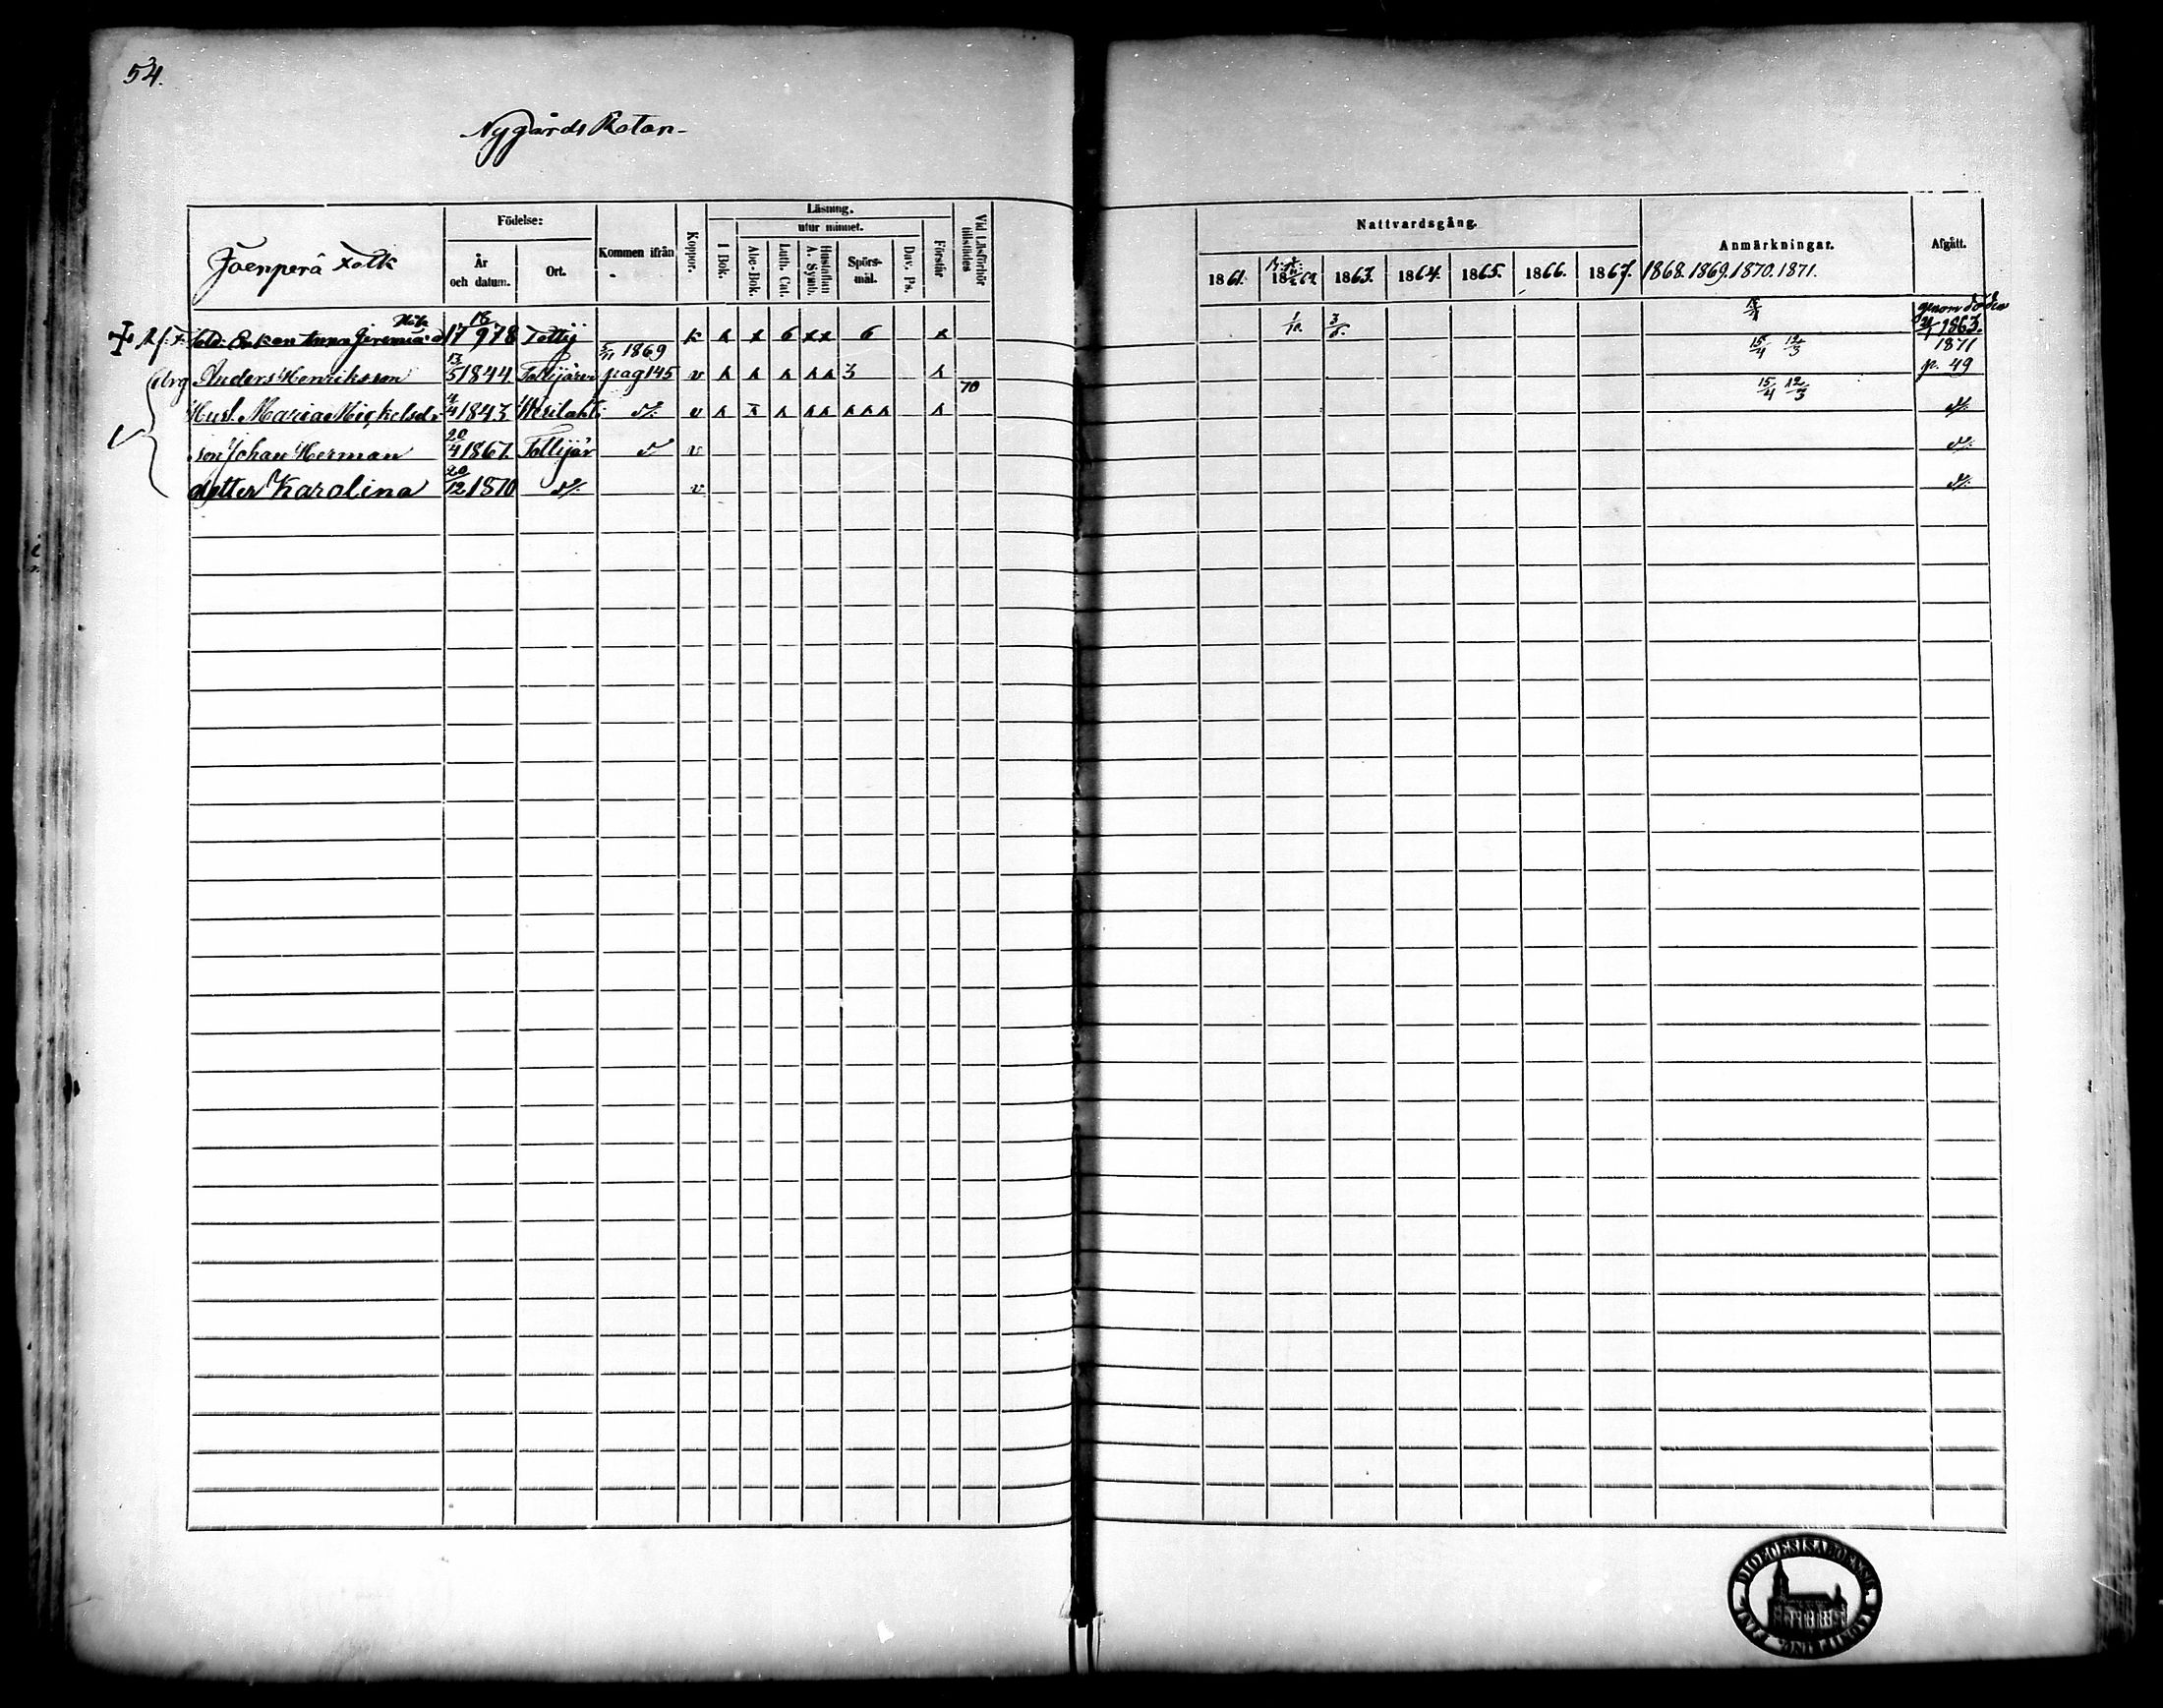 54.
Nygårds Rotan
Joenperä Folk
Födelse:
År och datum.
Ort.
Kommen ifrån
Koppor.
Läsning.
utur minnet.
I Bok.
Abc-Bok.
Luth. Cat.
Hustaflan A. Symb.
Spörsmål.
Dav. Ps.
Förstår
Vid Läsförhör tillstädes
Nattvardsgång.
1861. 1862 1863. 1864. 1865. 1866. 1867.
Anmärkningar.
1868. 1869. 1870. 1871.
Afgått.
Sold. Enkan Anna Jeremiæd 17 978 Tottij k x 6 xx 6 x 1/10. 3/5. genom döden 1863.
Anders Henriksson 13/5 1844 Tottijärvi 5/11 1869 pag 145 v 3 70 15/4 12/3 1871 p. 49
Hust. Maria Mickelsdr 4/4 1843 Wesilaht d:o v 15/4 12/3 d:o
son Johan Herman 20/4 1867. Tottijär d:o v d:o
dotter Karolina 20/12 1870 d:o v d:o
DIOECESIS ABOENSIS